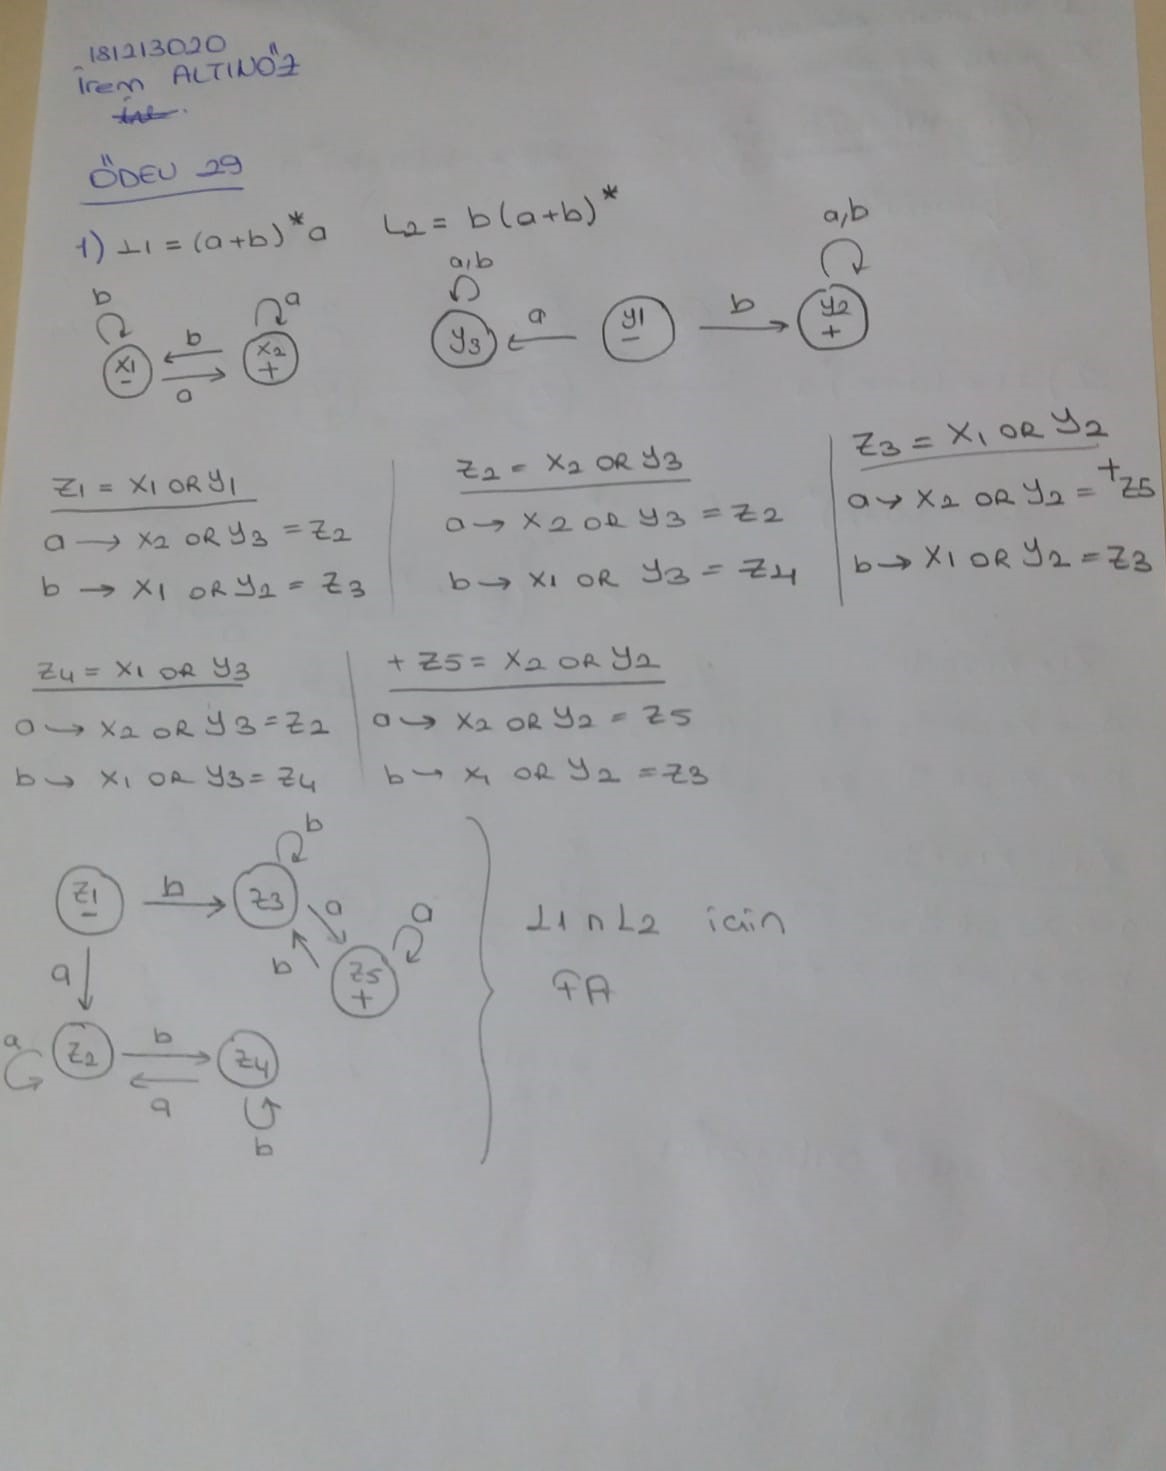 181213020
İrem ALTINÖZ
ÖDEV 29
1) L1 = (a+b)*a L2 = b(a+b)*
b a a,b a,b
x1 - b a x2 + y3 a y1 - b y2 +
Z1 = X1 OR Y1
a → X2 OR Y3 = Z2
b → X1 OR Y2 = Z3
Z2 = X2 OR Y3
a → X2 OR Y3 = Z2
b → X1 OR Y3 = Z4
Z3 = X1 OR Y2
a → X2 OR Y2 = +Z5
b → X1 OR Y2 = Z3
Z4 = X1 OR Y3
a → X2 OR Y3 = Z2
b → X1 OR Y3 = Z4
+ Z5 = X2 OR Y2
a → X2 OR Y2 = Z5
b → X1 OR Y2 = Z3
b
Z1 - b Z3 a a
a b Z5 +
a Z2 b Z4
a
b
L1 ∩ L2 için
FA